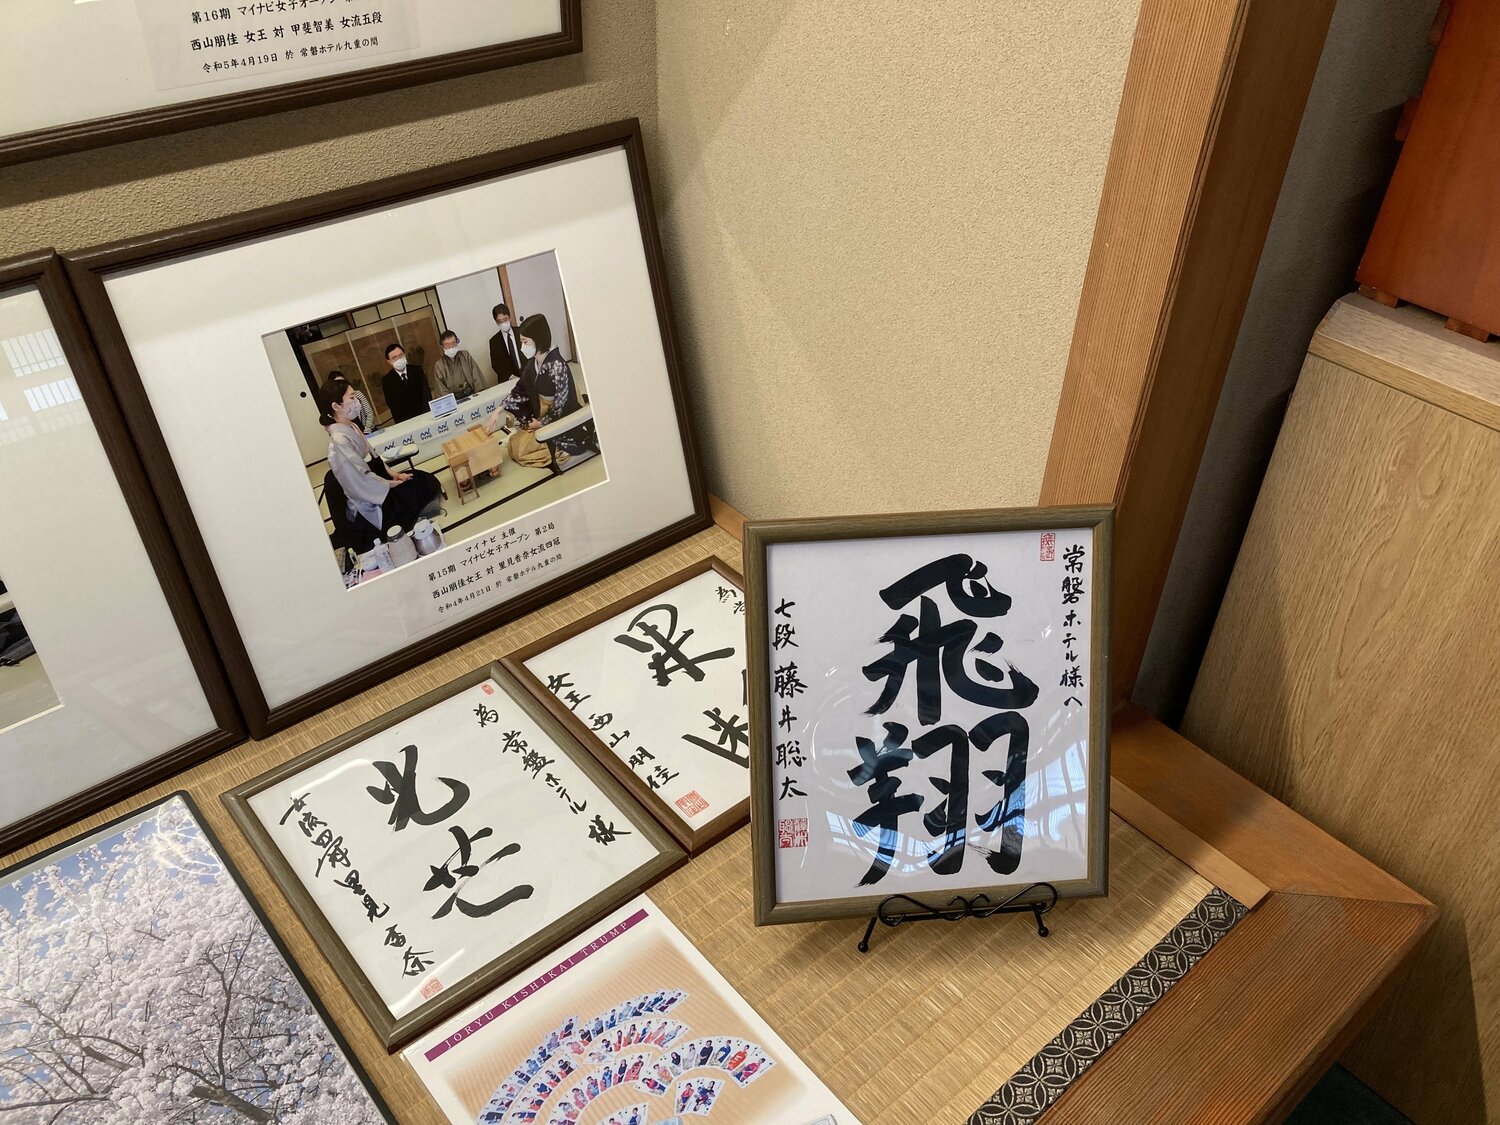 第16期 マイナビ女子オープン
西山朋佳 女王 対 甲斐智美 女流五段
令和5年4月19日 於 常磐ホテル九重の間
マイナビ 主催
第15期 マイナビ女子オープン 第2局
西山朋佳女王 対 里見香奈女流四冠
令和4年4月21日 於 常磐ホテル九重の間
常磐ホテル様へ
飛翔
七段 藤井聡太
為
果
女王 西山朋佳
為 常盤ホテル様
光芒
女流四冠 里見香奈
JORYU KISHIKAI TRUMP